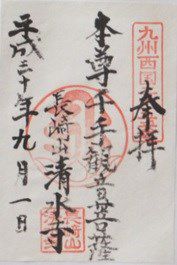 九州西国
奉拝
本尊千手観音菩薩
長崎山清水寺
平成三十年九月一日